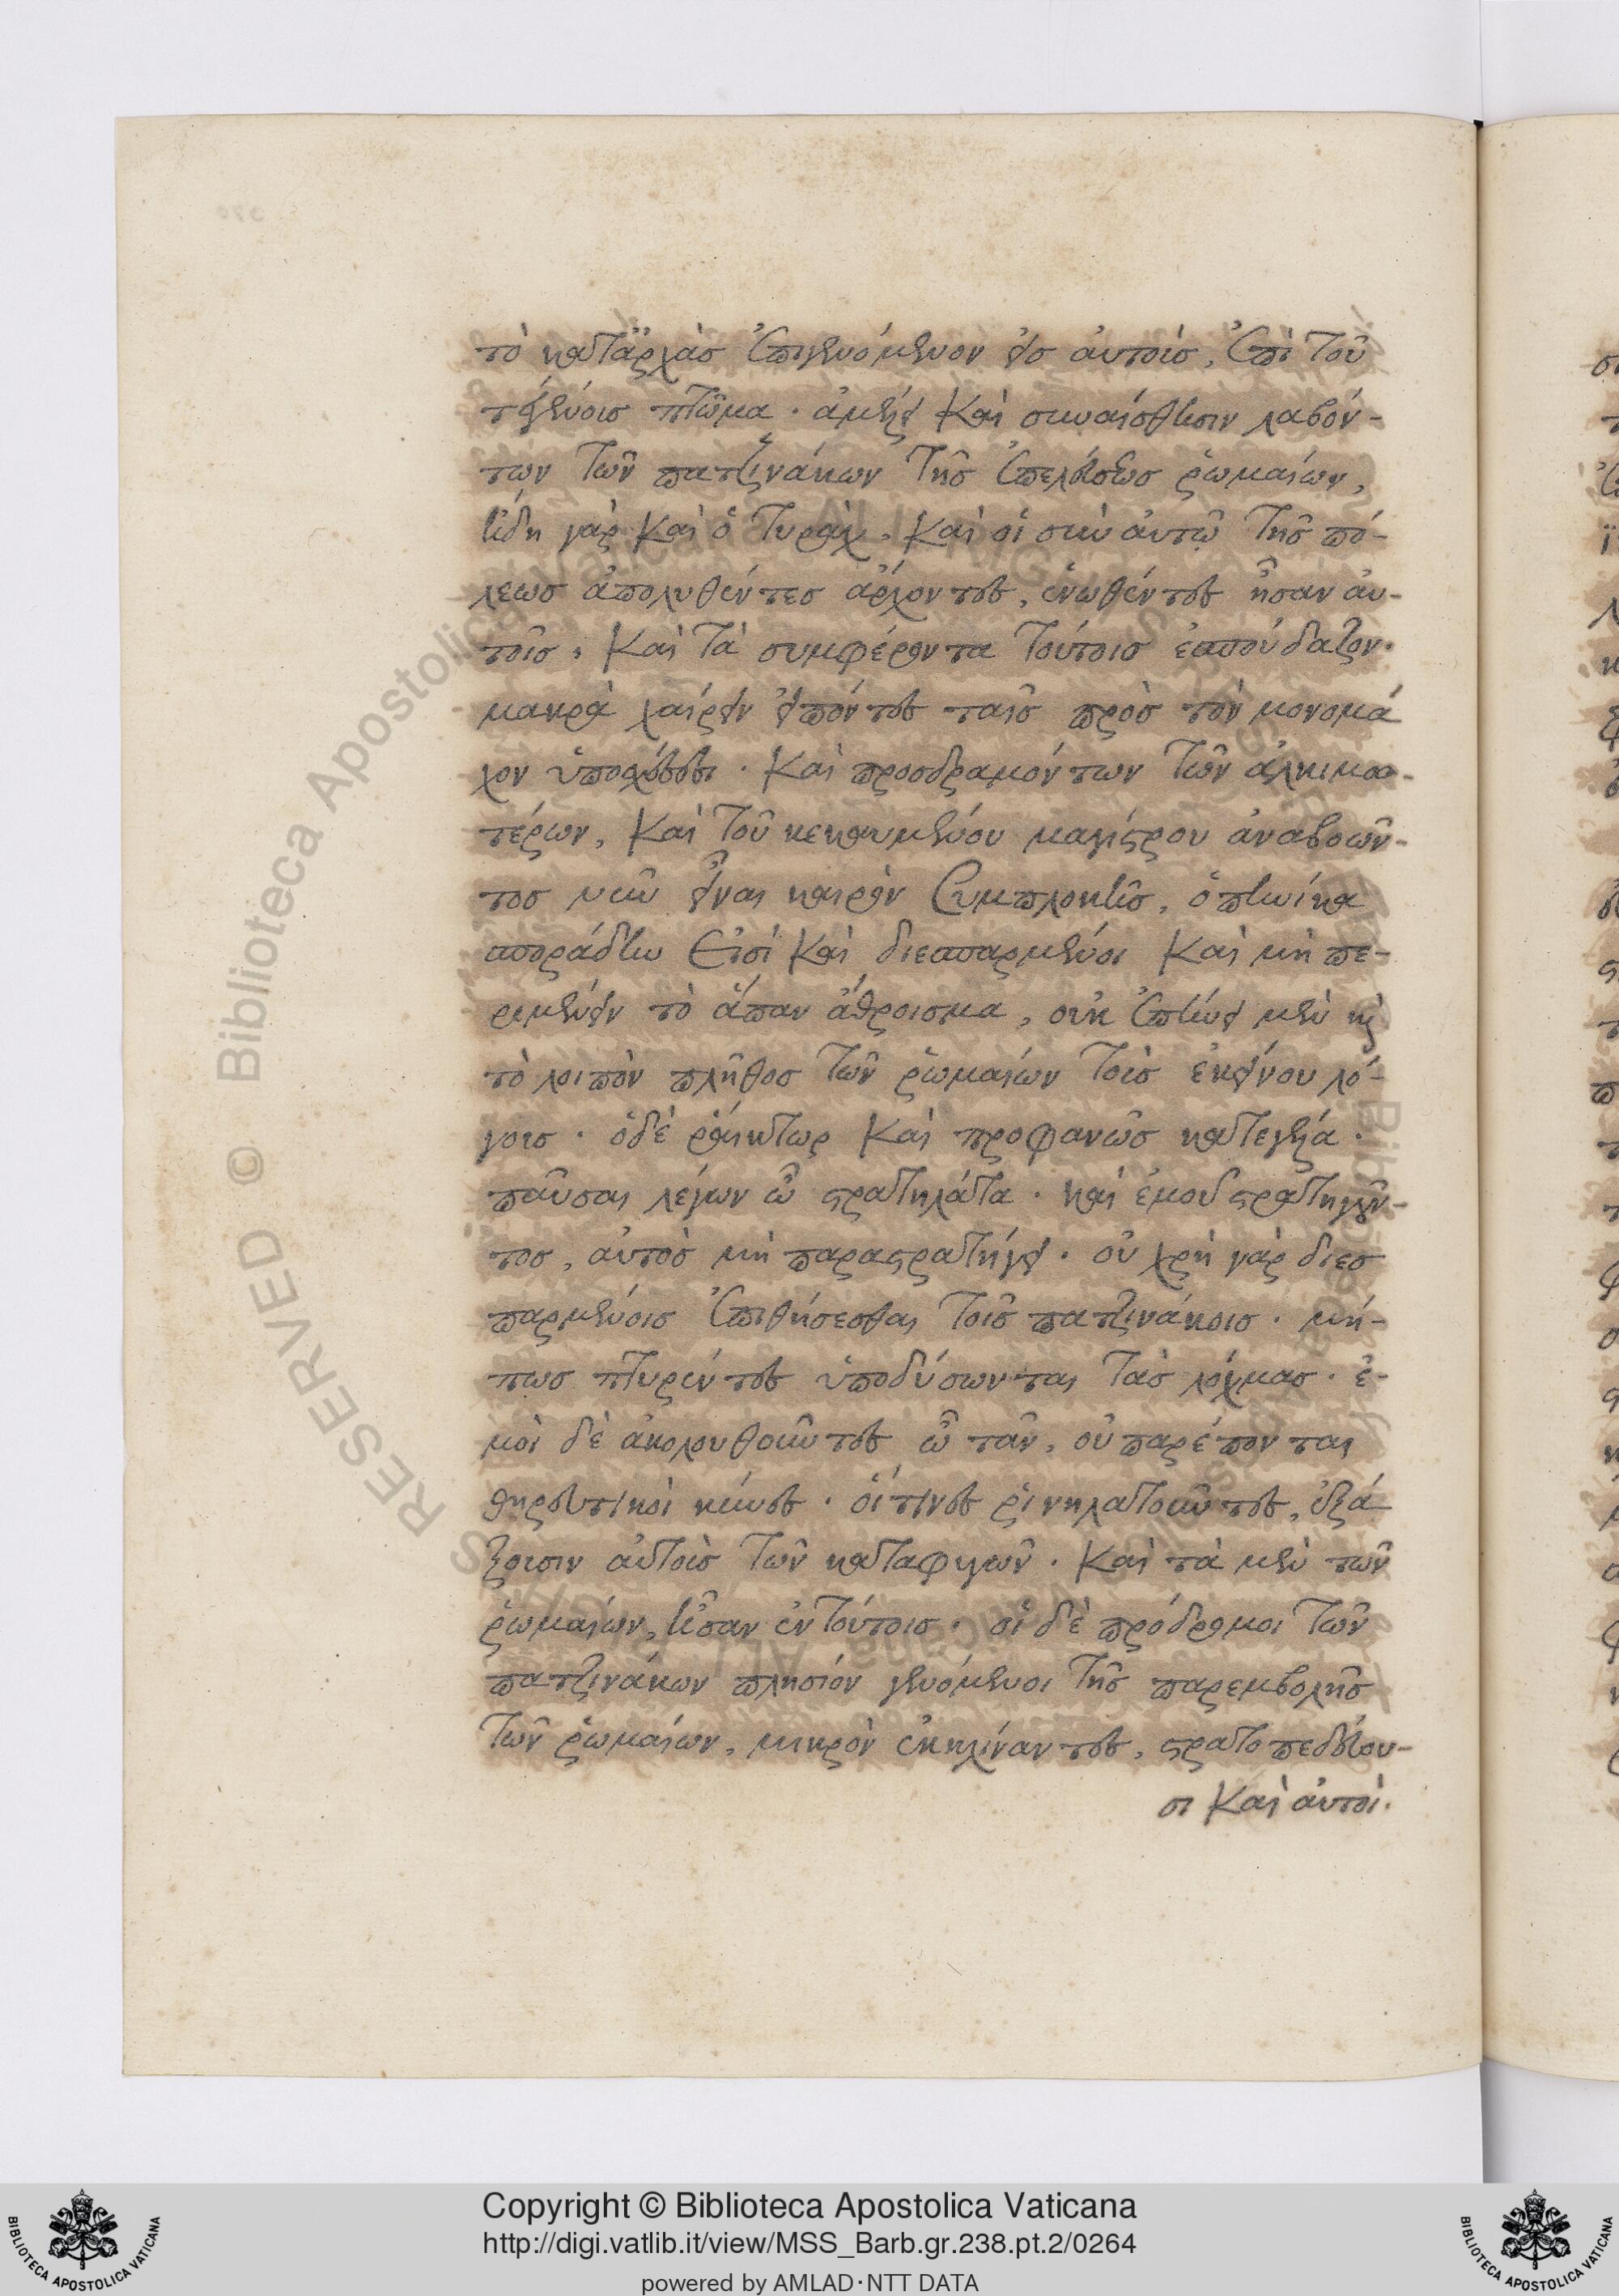 τὸ κατἀρχὰσ ἐπιγενόμενον εἰσ ἀυτοὺσ, ἐπὶ τοῦ
γένουσ πτῶμα. ἀμέλει καὶ συναίσθησιν λαβόν-
των τῶν πατζινάκων τῆσ ἐπελεύσεωσ ῥωμαίων,
ἤδη γὰρ καὶ ὁ τυρὰχ, καὶ οἱ σὺν ἀυτῷ τῆσ πό-
λεωσ ἀπολυθέντεσ ἄρχοντεσ, ἑνωθέντεσ ἦσαν ἀυ-
τοῖσ, καὶ τὰ συμφέροντα τούτοισ ἐσπούδαζον.
μακρὰ χαίρειν εἰπόντεσ ταῖσ πρὸσ τὸν μονομά
χον ὑποσχέσεσι. καὶ προσδραμόντων τῶν ἀλκιμω-
τέρων, καὶ τοῦ κεκαυμένου μαγίστρου ἀναβοῶν-
τοσ νῦν εἶναι καιρὸν συμπλοκῆσ, ὁπηνίκα
σποράδην εἰσὶ καὶ διεσπαρμένοι καὶ μὴ πε-
ριμένειν τὸ ἅπαν ἄθροισμα, οὐκ ἐπῄνει μὲν καὶ
τὸ λοιπὸν πλῆθοσ τῶν ῥωμαίων τοὺσ ἐκείνου λό-
γουσ. ὁδὲ ῥαίκτωρ καὶ προφανῶσ κατεγέλα.
παῦσαι λέγων ὦ στρατηλάτα. καὶ ἐμοῦ στρατηγοῦν-
τοσ, ἀυτὸσ μὴ παραστρατήγει. οὐ χρὴ γὰρ διεσ
παρμένοισ ἐπιθήσεσθαι τοῖσ πατζινάκοισ. μή-
πωσ πτυρέντεσ ὑποδύσωνται τὰσ λόχμασ. ἐ-
μοὶ δὲ ἀκολουθοῦντεσ ὦ τᾶν, οὐ παρέπονται
θηρευτικοὶ κύνεσ. οἵτινεσ ῥινηλατοῦντεσ, ἐξά
ξουσιν ἀυτοὺσ τῶν καταφυγῶν. καὶ τὰ μὲν τῶν
ῥωμαίων, ἦσαν ἐν τούτοισ. οἱ δὲ πρόδρομοι τῶν
πατζινάκων πλησίον γενόμενοι τῆσ παρεμβολῆσ
τῶν ῥωμαίων, μικρὸν ἐκκλίναντεσ, στρατοπεδεύου-
σι καὶ ἀυτοί.
RESERVED © Biblioteca Apostolica Vaticana
Copyright © Biblioteca Apostolica Vaticana
http://digi.vatlib.it/view/MSS_Barb.gr.238.pt.2/0264
powered by AMLAD·NTT DATA
BIBLIOTECA APOSTOLICA VATICANA
BIBLIOTECA APOSTOLICA VATICANA